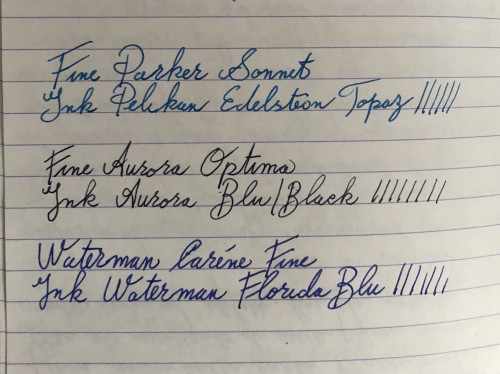 Fine Parker Sonnet
Ink Pelikan Edelstein Topaz
Fine Aurora Optima
Ink Aurora Blu/Black
Waterman Caréne Fine
Ink Waterman Florida Blu